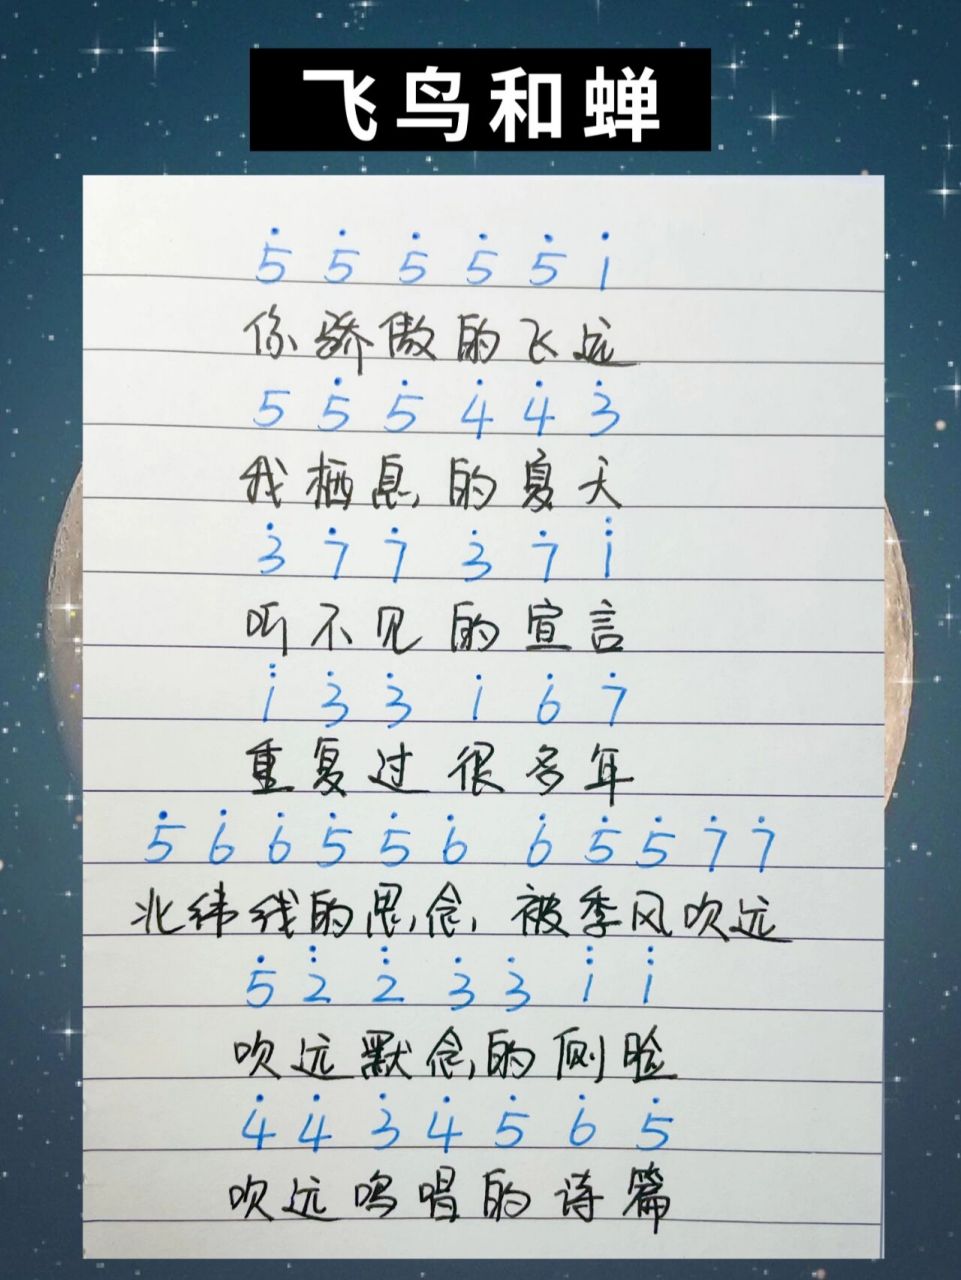 飞鸟和蝉
5̇ 5̇ 5̇ 5̇ 5̇ 1̇
你骄傲的飞远
5 5̇ 5̇ 4̇ 4̇ 3̇
我栖息的夏天
3̇ 7̇ 7̇ 3̇ 7̇ 1̈
听不见的宣言
1̈ 3̇ 3̇ 1̇ 6̇ 7̇
重复过很多年
5̇ 6̇ 6̇ 5̇ 5̇ 6̇ 6̇ 5̇ 5̇ 7̇ 7̇
北纬线的思念,被季风吹远
5̇ 2̈ 2̈ 3̇ 3̇ 1̈ 1̈
吹远默念的侧脸
4̇ 4̇ 3̇ 4̇ 5̇ 6̇ 5̇
吹远鸣唱的诗篇